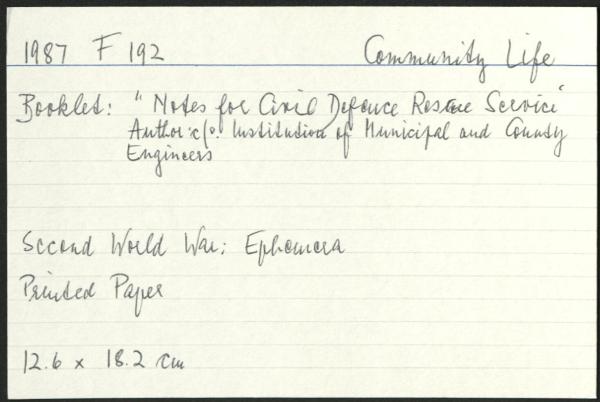 1987 F 192 Community Life
Booklet: "Notes for Civil Defence Rescue Service"
Author: c/o. Institution of Municipal and County
Engineers
Second World War: Ephemera
Printed Paper
12.6 x 18.2 cm